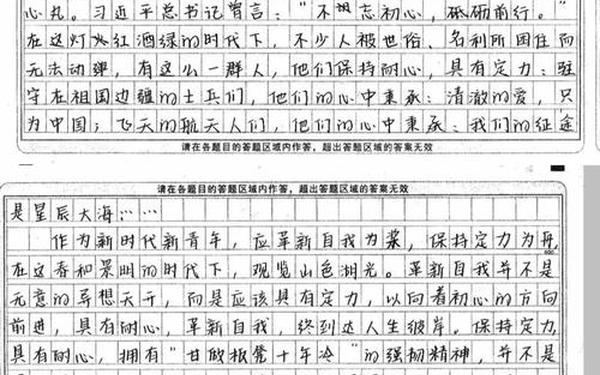 心丸。习近平总书记曾言：“不忘初心，砥砺前行。”
在这灯火红酒绿的时代下，不少人被世俗、名利所困住而
无法动弹，有这么一群人，他们保持耐心，具有定力：驻
守在祖国边疆的士兵们，他们的心中秉承：清澈的爱，只
为中国；飞天的航天人们，他们的心中秉承：我们的征途
请在各题目的答题区域内作答，超出答题区域的答案无效
请在各题目的答题区域内作答，超出答题区域的答案无效
是星辰大海……
作为新时代新青年，应革新自我为桨，保持定力为舟，
600
在这春和景明的时代下，观览山色湖光。革新自我并不是
无意的异想天开，而是应该具有定力，以向着初心的方向
前进，具有耐心，革新自我，终到达人生彼岸。保持定力，
具有耐心，拥有“甘做板凳十年冷”的强韧精神，并不是